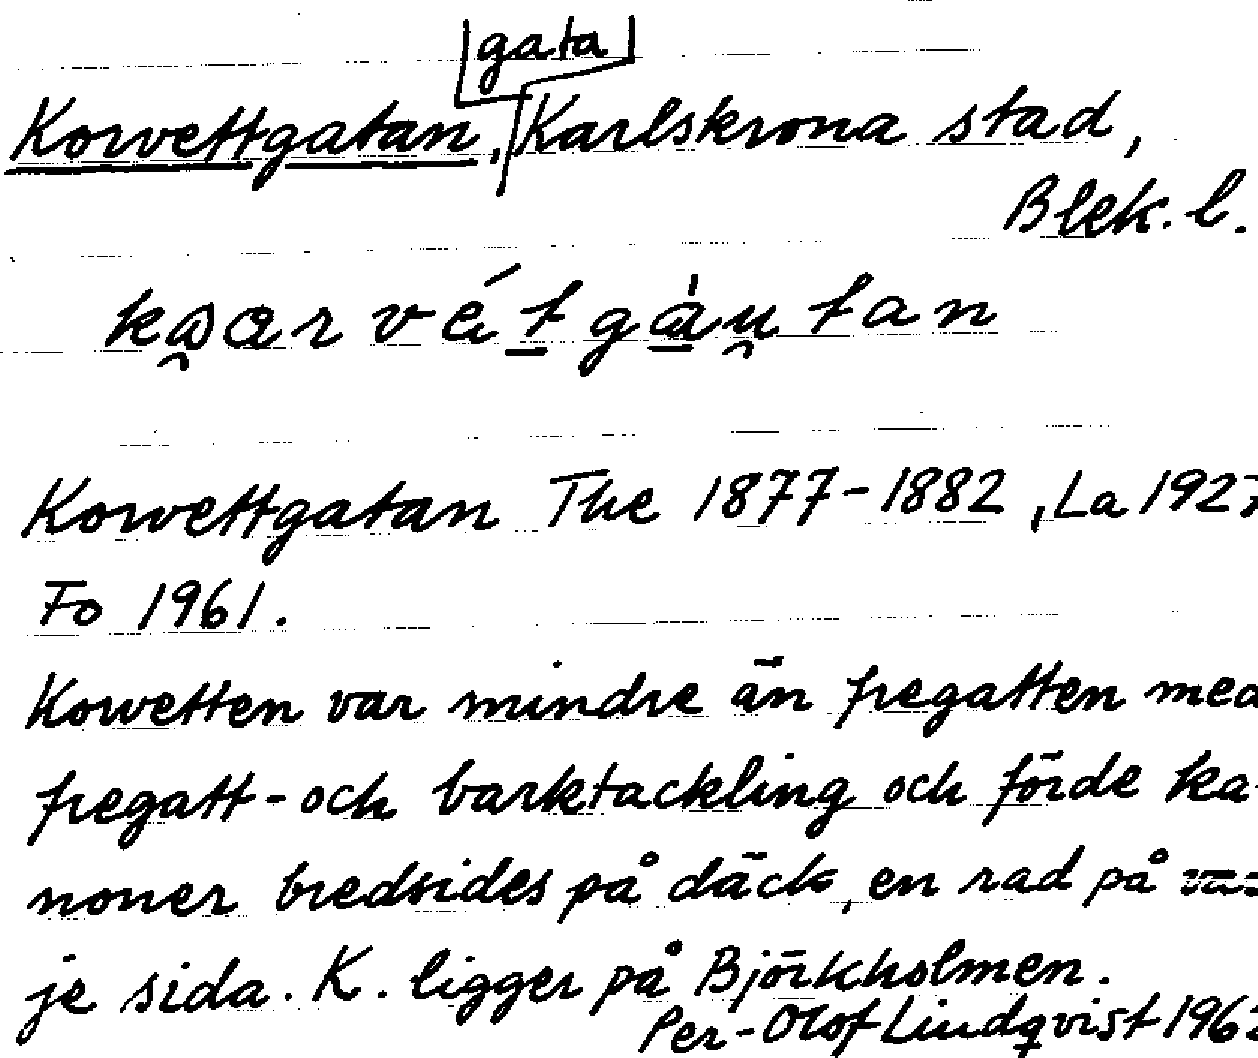 gata
Korvettgatan, Karlskrona stad,
Blek. l.
Korvettgatan The 1877-1882, La 1927
Fo 1961.
Korvetten var mindre än fregatten med
fregatt- och barktackling och förde ka-
noner bredsides på däck, en rad på var-
je sida. K. ligger på Björkholmen.
Per-Olof Lindqvist